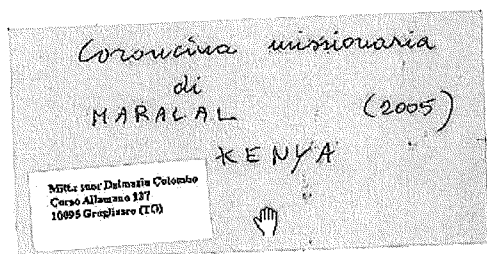 Coroncina missionaria
di
MARALAL (2005)
KENYA
Mitt.: suor Dalmazia Colombo
Corso Allamano 137
10095 Grugliasco (TO)